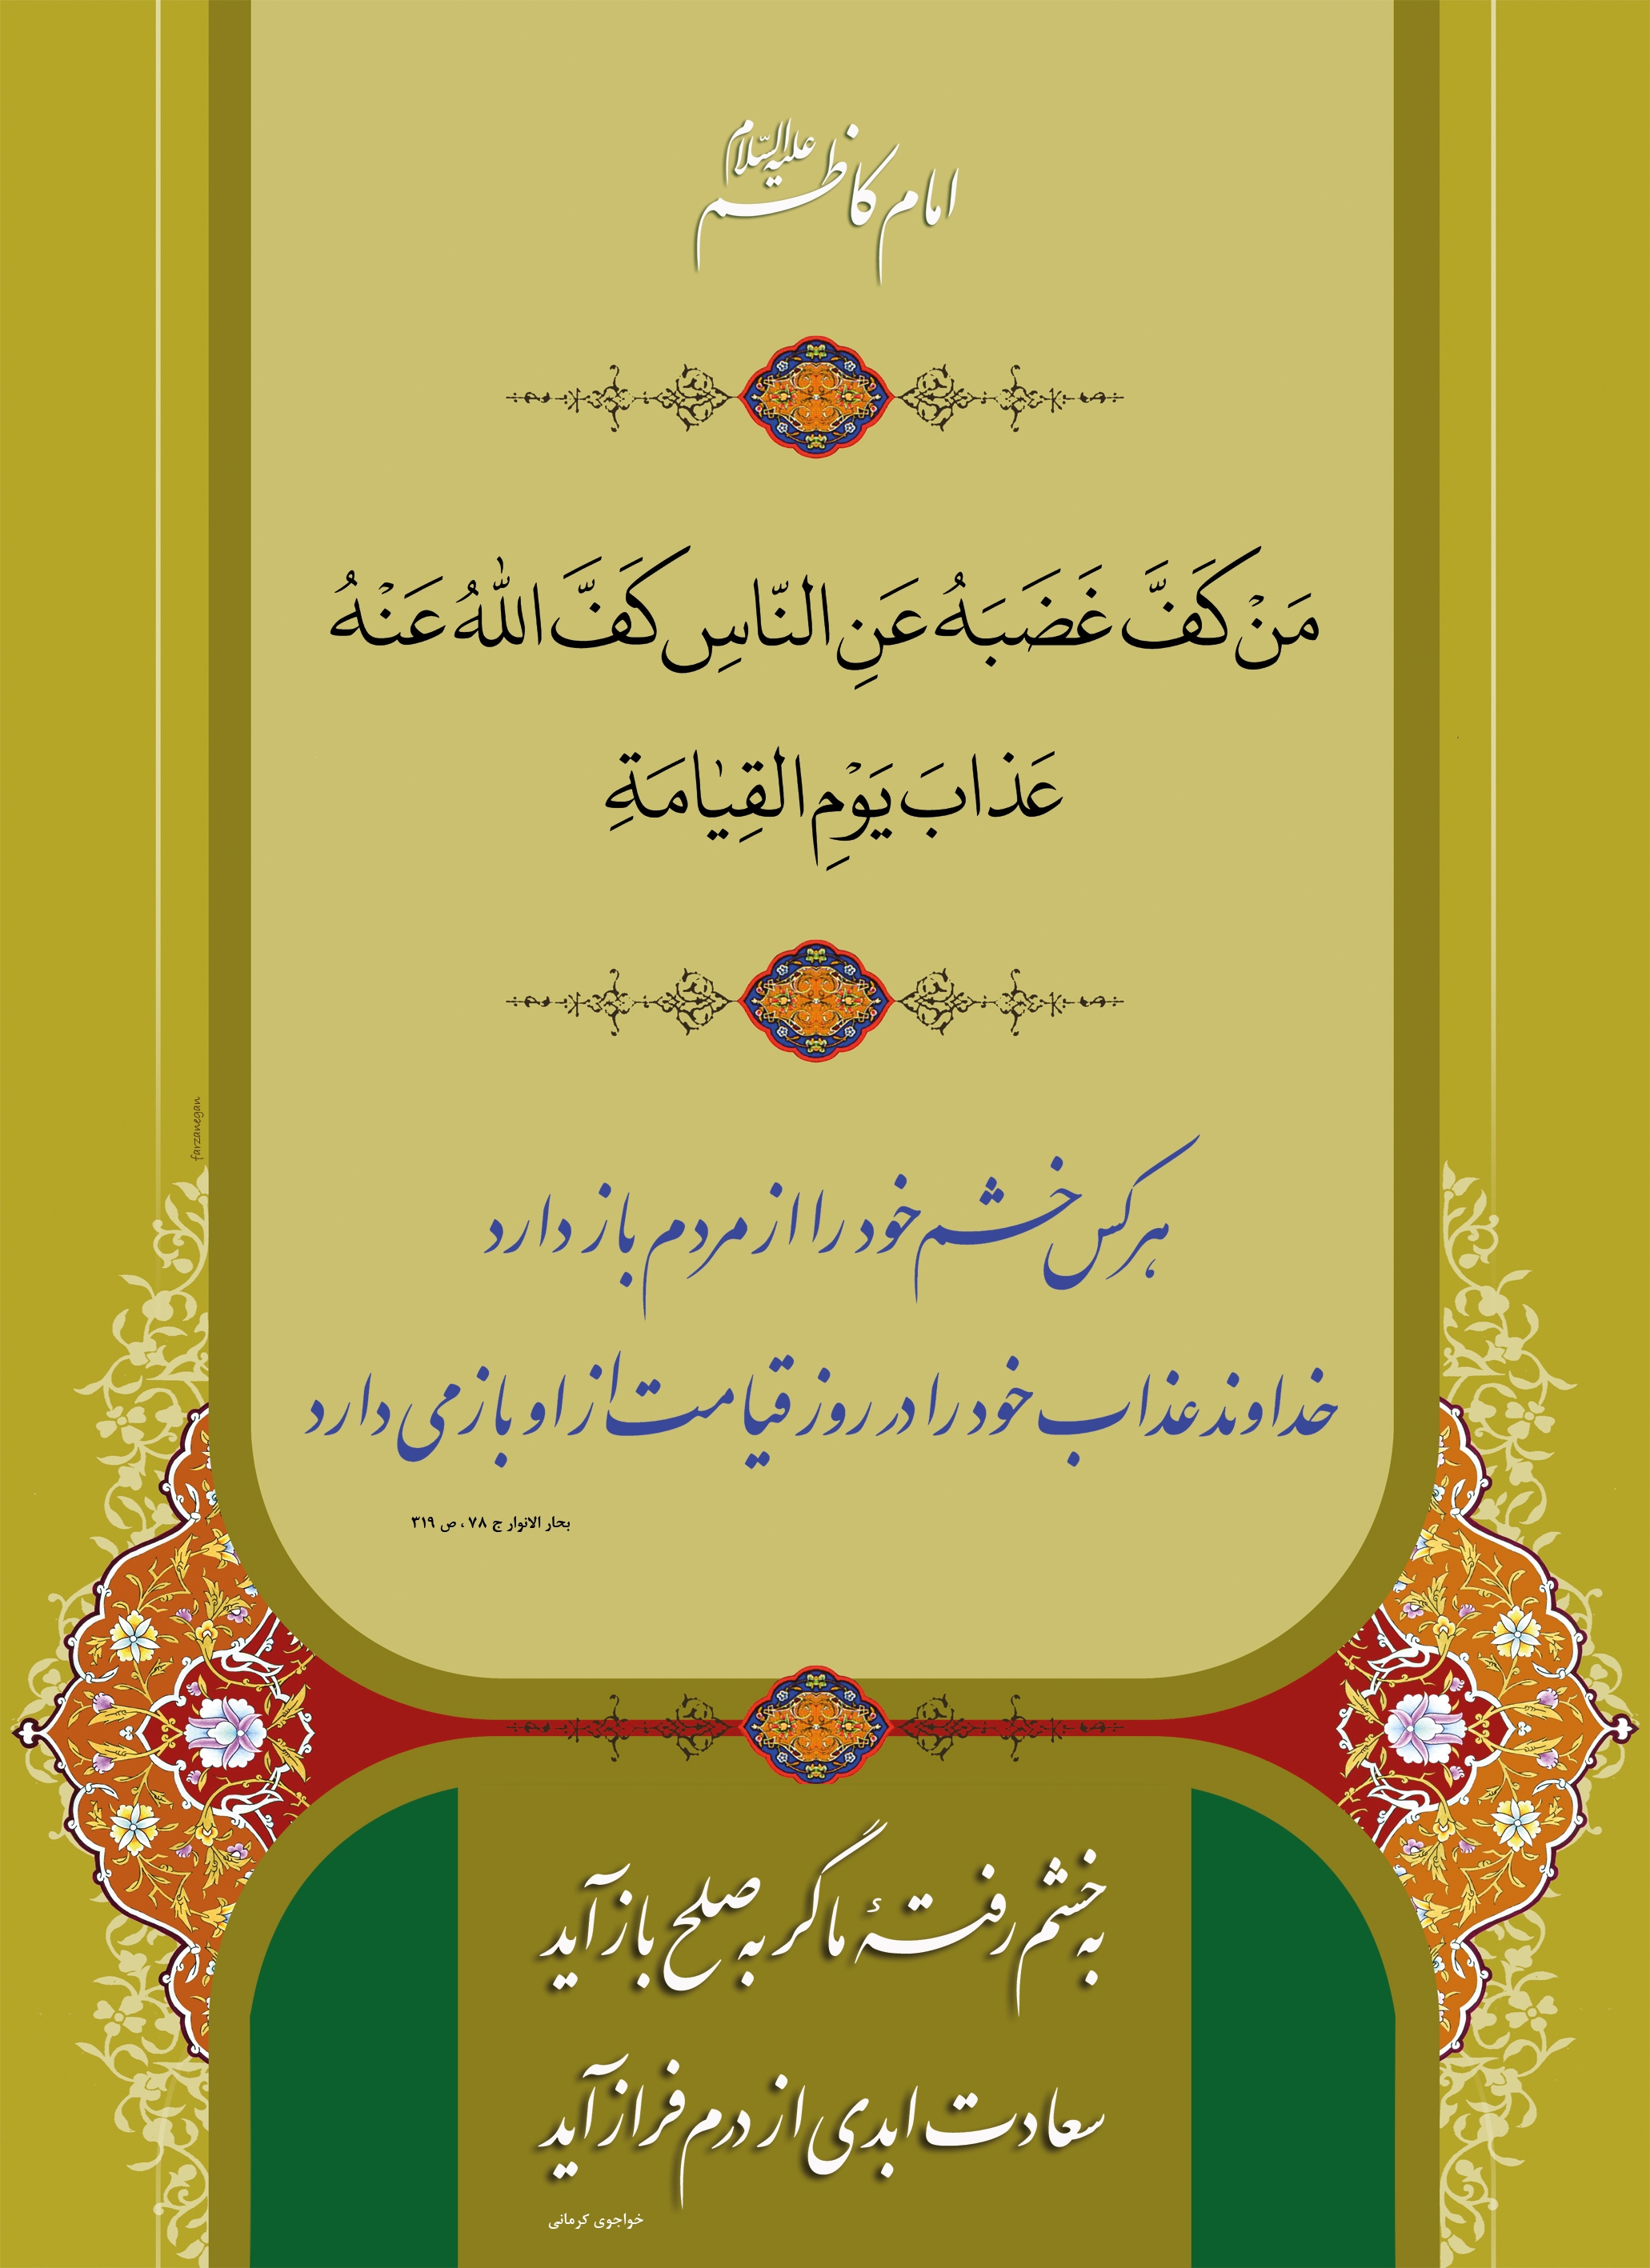 امام کاظم علیه السّلام
مَنْ کَفَّ غَضَبَهُ عَنِ النّاسِ کَفَّ اللهُ عَنْهُ
عَذابَ یَوْمِ القِیٰامَةِ
هرکس خشم خود را از مردم باز دارد
خداوند عذاب خود را در روز قیامت از او باز می دارد
بحار الانوار ج ۷۸ ، ص ۳۱۹
farzanegan
به خشم رفتهٔ ما گر به صلح باز آید
سعادت ابدی از درم فراز آید
خواجوی کرمانی